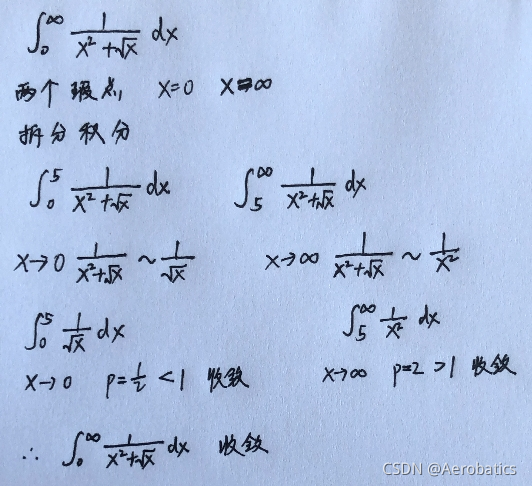 ∫₀^∞ 1/(x²+√x) dx
两个瑕点 x=0 x=∞
拆分积分
∫₀^5 1/(x²+√x) dx ∫₅^∞ 1/(x²+√x) dx
x→0 1/(x²+√x) ~ 1/√x x→∞ 1/(x²+√x) ~ 1/x²
∫₀^5 1/√x dx ∫₅^∞ 1/x² dx
x→0 p=1/2 <1 收敛 x→∞ p=2 >1 收敛
∴ ∫₀^∞ 1/(x²+√x) dx 收敛
CSDN @Aerobatics